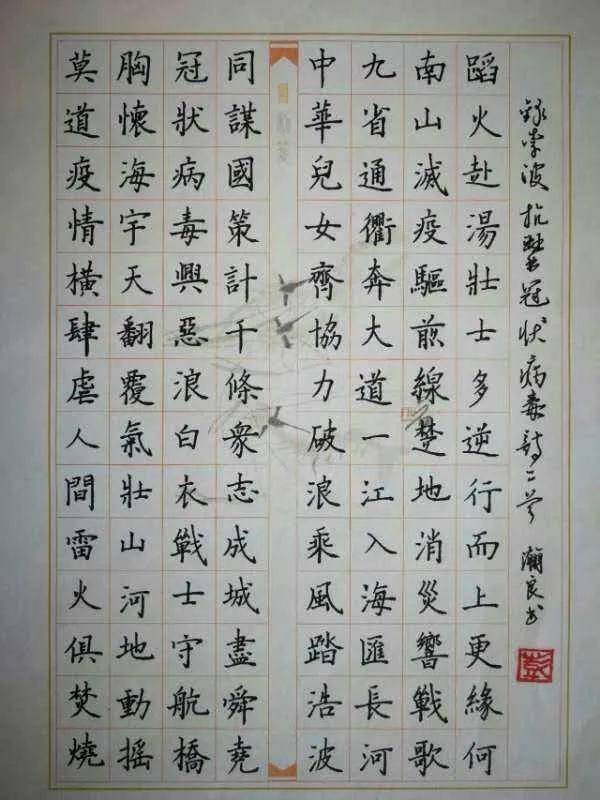 錄李波抗擊冠狀病毒詩二首 瀚良书
彭
蹈火赴湯壯士多逆行而上更緣何
南山滅疫驅煎線楚地消災響戰歌
九省通衢奔大道一江入海匯長河
中華兒女齊協力破浪乘風踏浩波
同謀國策計千條眾志成城盡舜堯
冠狀病毒興惡浪白衣戰士守航橋
胸懷海宇天翻覆氣壯山河地動搖
莫道疫情橫肆虐人間雷火俱焚燒